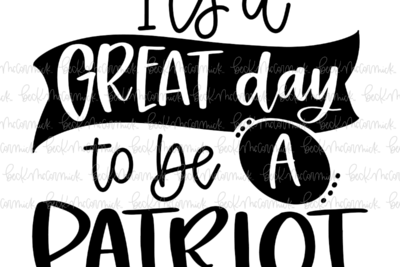 It's a
GREAT day
to be A
PATRIOT